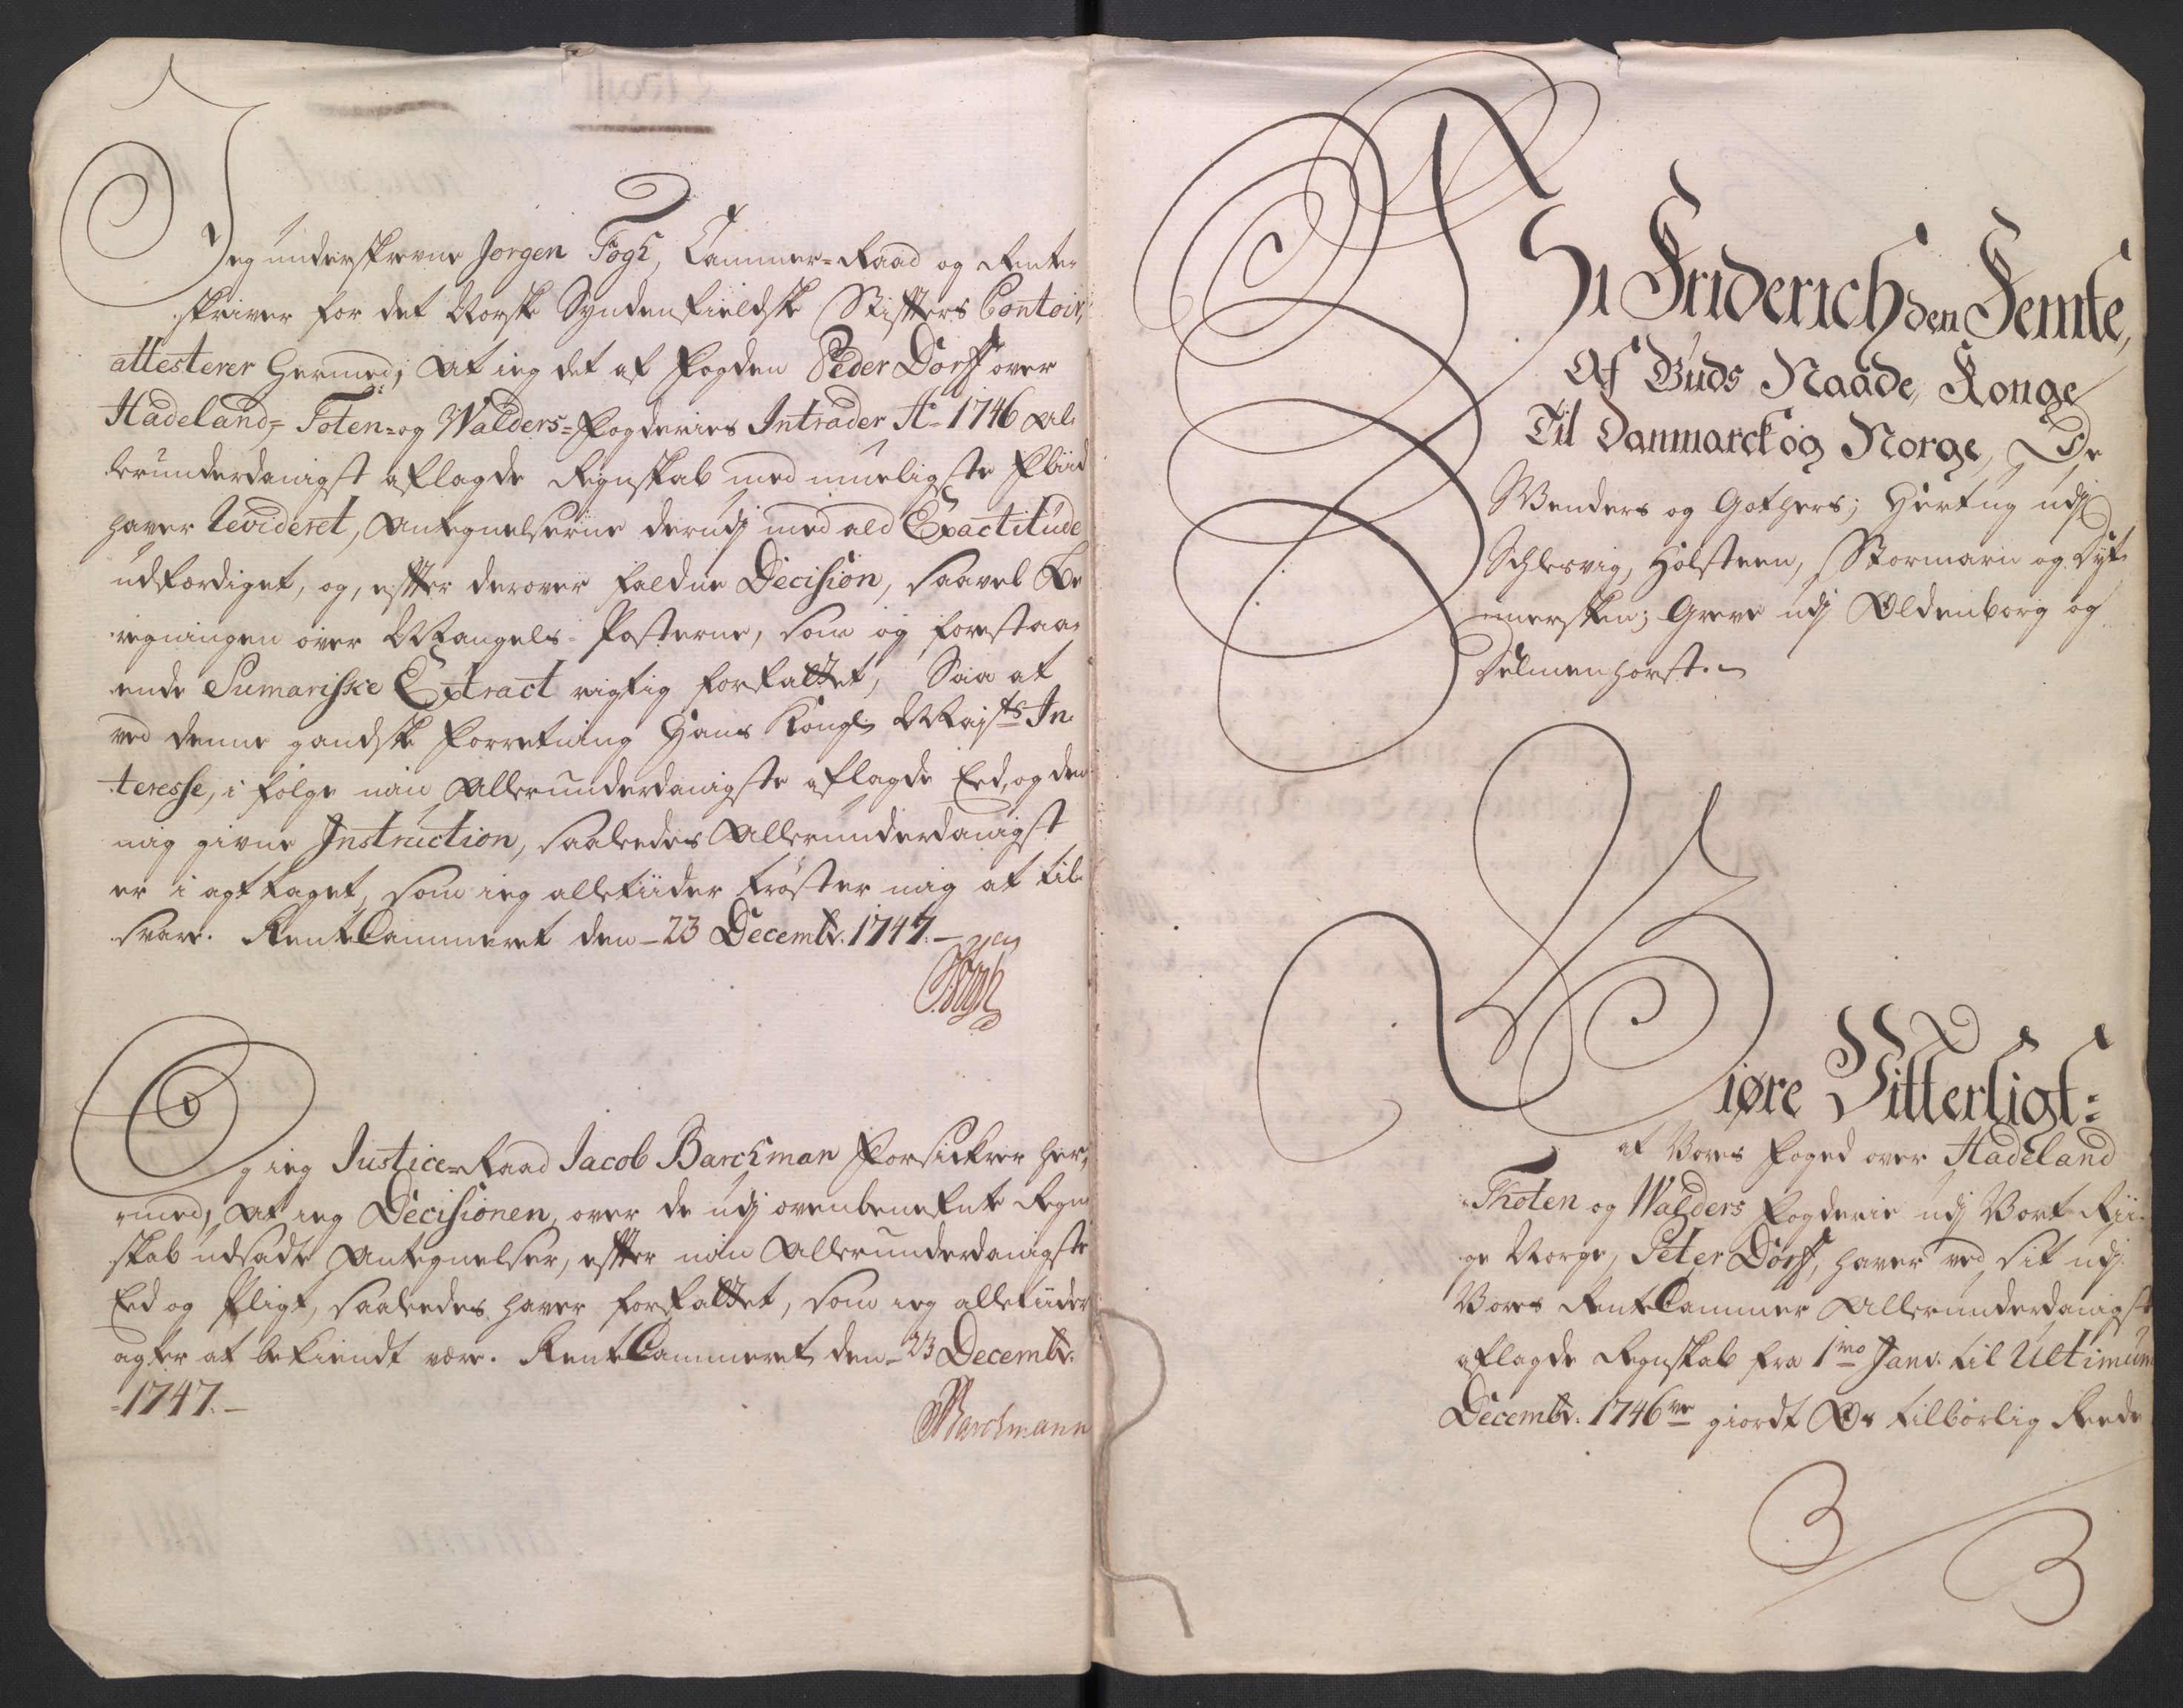 Jeg underskrevne Jørgen Fogh, Cammer-Raad og Rente-
skriver for det Norske Syndenfieldske Stifters Contoir,
attesterer hermed, At ieg det af Fogden Peder Dorff over
Hadeland- Toten- og Walders-Fogderies Intrader Ao 1746 Al-
lerunderdanigst aflagde Regnskab med mueligste Fliid
haver Revideret, Antegnelserne derudj med ald Exactitude
udfærdiget, og, effter derover faldne Decision, saavel Be
regningen over Mangels-Posterne, som og forestaa-
ende Sumariske Extract rigtig forfattet, Saa at
ved denne gandske Forretning Hans Kongl. Majts In-
teresse, i følge min Allerunderdanigste aflagde Eed, og den
mig givne Instruction, saaledes Allerunderdanigst
er i agt taget, som ieg alletiider trøster mig at til-
svare. RenteCammeret den 23 Decembr. 1747.
JFogh
Og ieg Justice-Raad Jacob Barchman Forsickrer her-
med, At ieg Decisionen, over de udj ovenbenefnte Regn
skab udsadte Antegnelser, effter min Allerunderdanigste
Eed og Pligt, saaledes haver forfattet, som ieg alletiider
agter at bekiendt være. RenteCammeret den 23 Decembr.
1747.
Barchmann
Wi Friderich den Femte,
Af Guds Naade, Konge
Til Danmarck og Norge, De
Wenders og Gothers; Hertug udj
Schlesvig, Holsteen, Stormarn og Dyt-
mersken; Greve udj Oldenborg og
Delmenhorst.
Giøre Vitterligt:
at Vores Foged over Hadeland
Thoten og Walders Fogderie udj Vort Rii-
ge Norge, Peter Dorff, haver ved sit udj
Vores RenteCammer Allerunderdanigst
aflagde Regnskab fra 1mo Janv. til Ultimum
Decembr. 1746ve giordt Os tilbørlig Reede